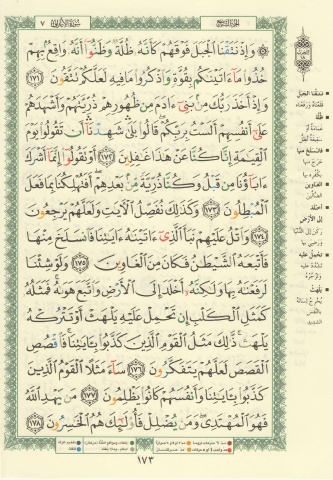 سورة الأعراف ٧
الجزء التاسع
۞ وَإِذْ نَتَقْنَا الْجَبَلَ فَوْقَهُمْ كَأَنَّهُ ظُلَّةٌ وَظَنُّوا أَنَّهُ وَاقِعٌ بِهِمْ
خُذُوا مَا آتَيْنَاكُمْ بِقُوَّةٍ وَاذْكُرُوا مَا فِيهِ لَعَلَّكُمْ تَتَّقُونَ ﴿١٧١﴾
وَإِذْ أَخَذَ رَبُّكَ مِنْ بَنِي آدَمَ مِنْ ظُهُورِهِمْ ذُرِّيَّتَهُمْ وَأَشْهَدَهُمْ
عَلَى أَنْفُسِهِمْ أَلَسْتُ بِرَبِّكُمْ قَالُوا بَلَى شَهِدْنَا أَنْ تَقُولُوا يَوْمَ
الْقِيَامَةِ إِنَّا كُنَّا عَنْ هَذَا غَافِلِينَ ﴿١٧٢﴾ أَوْ تَقُولُوا إِنَّمَا أَشْرَكَ
آبَاؤُنَا مِنْ قَبْلُ وَكُنَّا ذُرِّيَّةً مِنْ بَعْدِهِمْ أَفَتُهْلِكُنَا بِمَا فَعَلَ
الْمُبْطِلُونَ ﴿١٧٣﴾ وَكَذَلِكَ نُفَصِّلُ الْآيَاتِ وَلَعَلَّهُمْ يَرْجِعُونَ
﴿١٧٤﴾ وَاتْلُ عَلَيْهِمْ نَبَأَ الَّذِي آتَيْنَاهُ آيَاتِنَا فَانْسَلَخَ مِنْهَا
فَأَتْبَعَهُ الشَّيْطَانُ فَكَانَ مِنَ الْغَاوِينَ ﴿١٧٥﴾ وَلَوْ شِئْنَا
لَرَفَعْنَاهُ بِهَا وَلَكِنَّهُ أَخْلَدَ إِلَى الْأَرْضِ وَاتَّبَعَ هَوَاهُ فَمَثَلُهُ
كَمَثَلِ الْكَلْبِ إِنْ تَحْمِلْ عَلَيْهِ يَلْهَثْ أَوْ تَتْرُكْهُ
يَلْهَثْ ذَلِكَ مَثَلُ الْقَوْمِ الَّذِينَ كَذَّبُوا بِآيَاتِنَا فَاقْصُصِ
الْقَصَصَ لَعَلَّهُمْ يَتَفَكَّرُونَ ﴿١٧٦﴾ سَاءَ مَثَلًا الْقَوْمُ الَّذِينَ
كَذَّبُوا بِآيَاتِنَا وَأَنْفُسَهُمْ كَانُوا يَظْلِمُونَ ﴿١٧٧﴾ مَنْ يَهْدِ اللَّهُ
فَهُوَ الْمُهْتَدِي وَمَنْ يُضْلِلْ فَأُولَئِكَ هُمُ الْخَاسِرُونَ ﴿١٧٨﴾
١٧٣
نتقنا الجبل
ظلة
فانسلخ منها
الغاوين
أخلد
إلى الأرض
تحمل عليه
يلهث